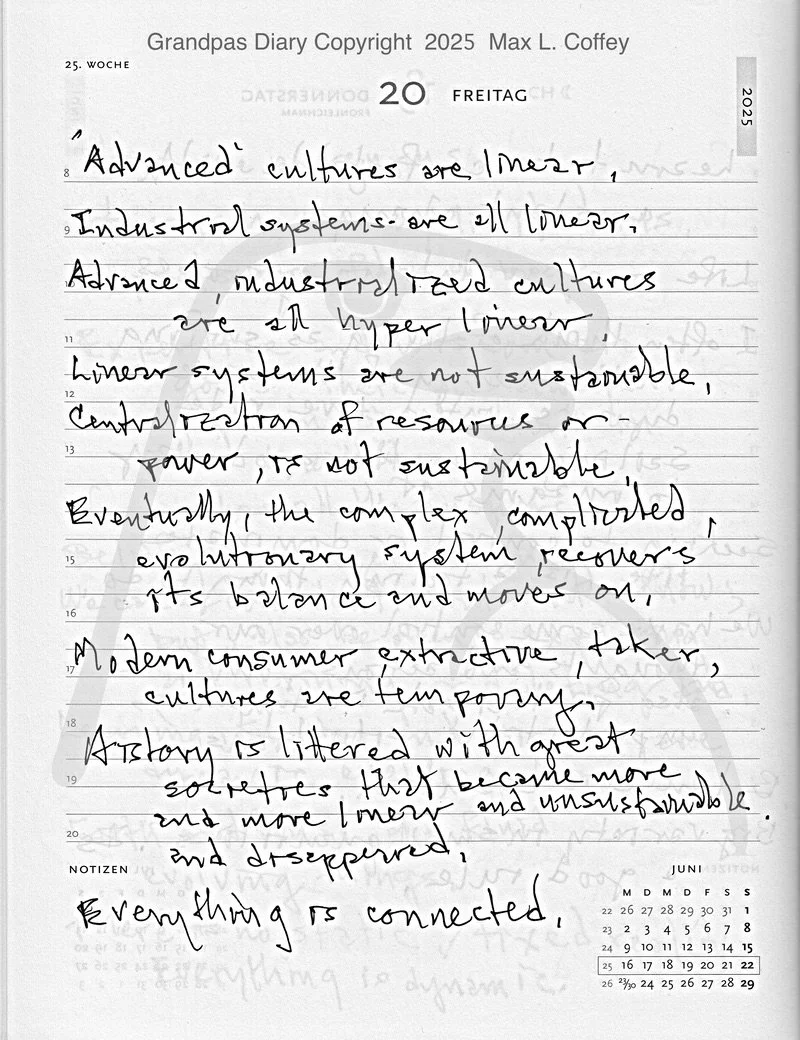 Grandpas Diary Copyright 2025 Max L. Coffey
25. WOCHE
20 FREITAG
2025
8 "Advanced" cultures are linear,
9 Industrial systems are all linear.
10 Advanced, industrialized cultures
are all hyper linear.
11
Linear systems are not sustainable,
12
Centralization of resources or -
13 power, is not sustainable.
Eventually, the complex, complicated,
15 evolutionary system, recovers
its balance and moves on.
16
17 Modern consumer, extractive, taker,
cultures are temporary.
18
History is littered with great
19 societies that became more
and more linear and unsustainable.
20
and disappeared.
NOTIZEN
Everything is connected.
JUNI
M D M D F S S
22 26 27 28 29 30 31 1
23 2 3 4 5 6 7 8
24 9 10 11 12 13 14 15
25 16 17 18 19 20 21 22
26 23/30 24 25 26 27 28 29